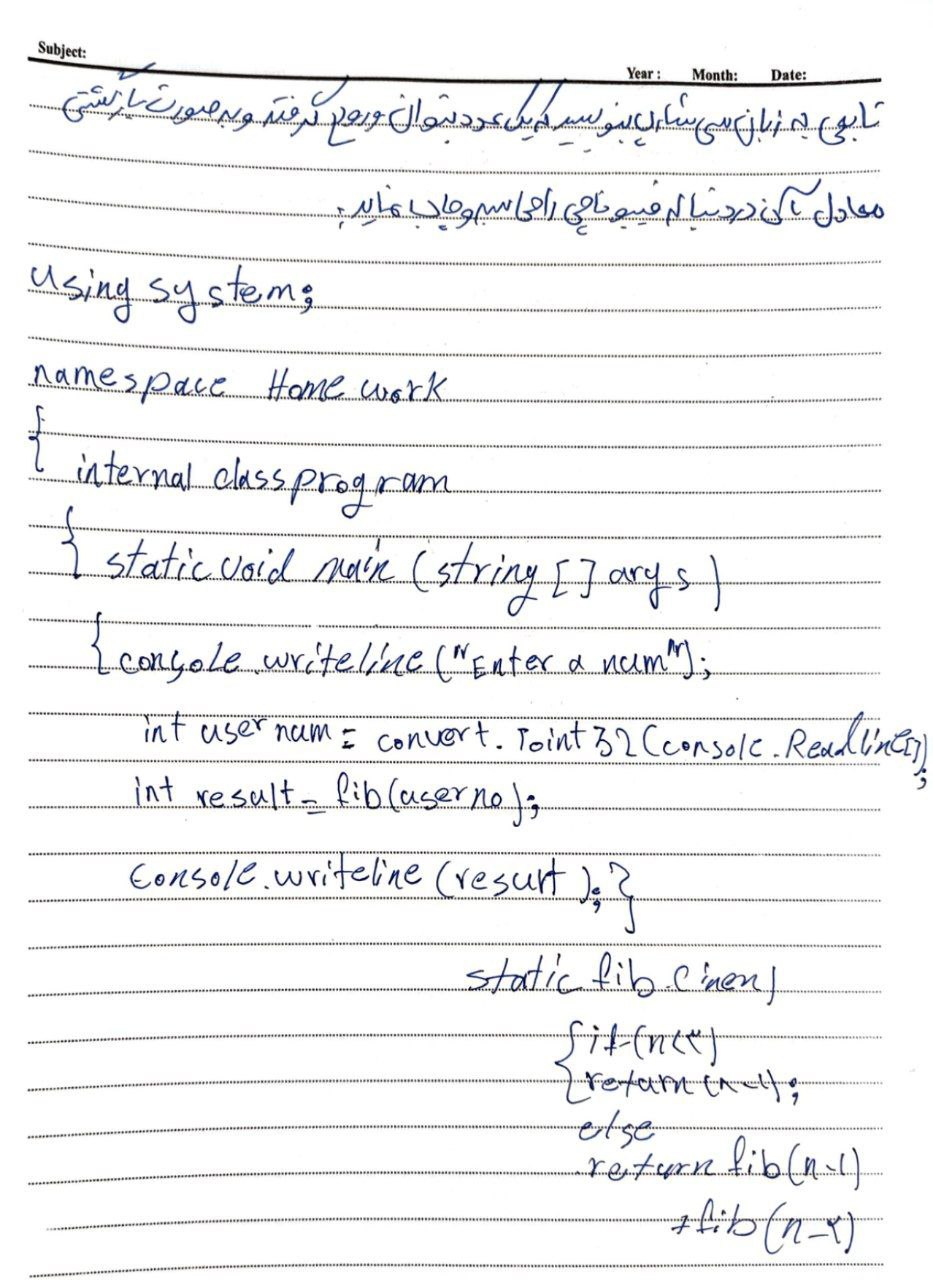 Subject:
Year : Month: Date:
تابعی به زبان سی شارپ بنویسید که یک عدد بعنوان ورودی گرفته و به صورت بازگشتی
معادل آن در دنباله فیبوناچی را محاسبه و چاپ نماید:
using system;
namespace Home work
{
internal class program
{ static void main (string [] args)
{ console.writeline ("Enter a num");
int user num = convert. Toint 32 (console.Readline());
int result = fib(userno);
Console.writeline (resurt ); }
static fib (inen)
{ if (n<۳)
{ return (n-1);
else
return fib(n-1)
+ fib (n-۲)